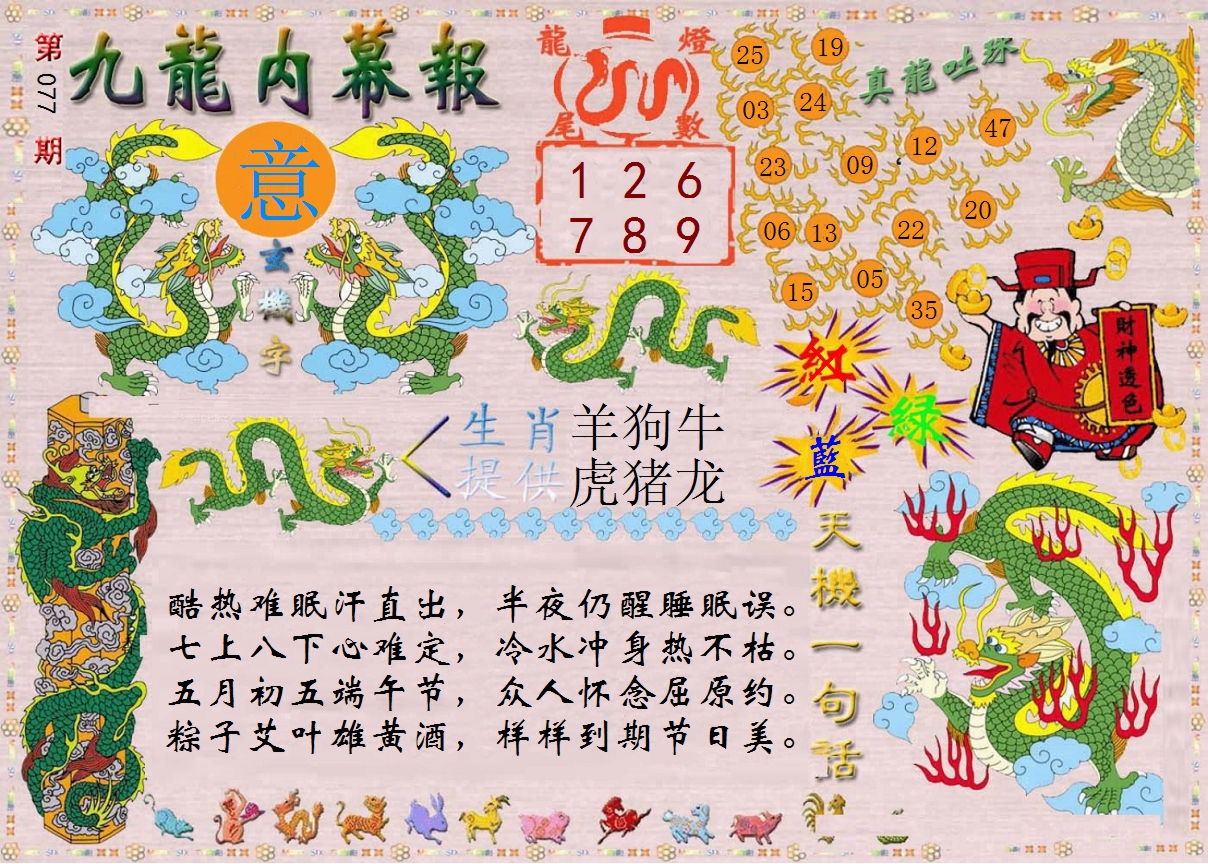 第077期
九龍内幕報
意
玄機字
龍燈
尾數
1 2 6
7 8 9
真龍吐珠
25 19
03 24
23 09 12 47
06 13 22 20
15 05 35
財神透色
紅
綠
藍
生肖 羊狗牛
提供 虎猪龙
天機一句話
酷热难眠汗直出，半夜仍醒睡眠误。
七上八下心难定，冷水冲身热不枯。
五月初五端午节，众人怀念屈原约。
粽子艾叶雄黄酒，样样到期节日美。